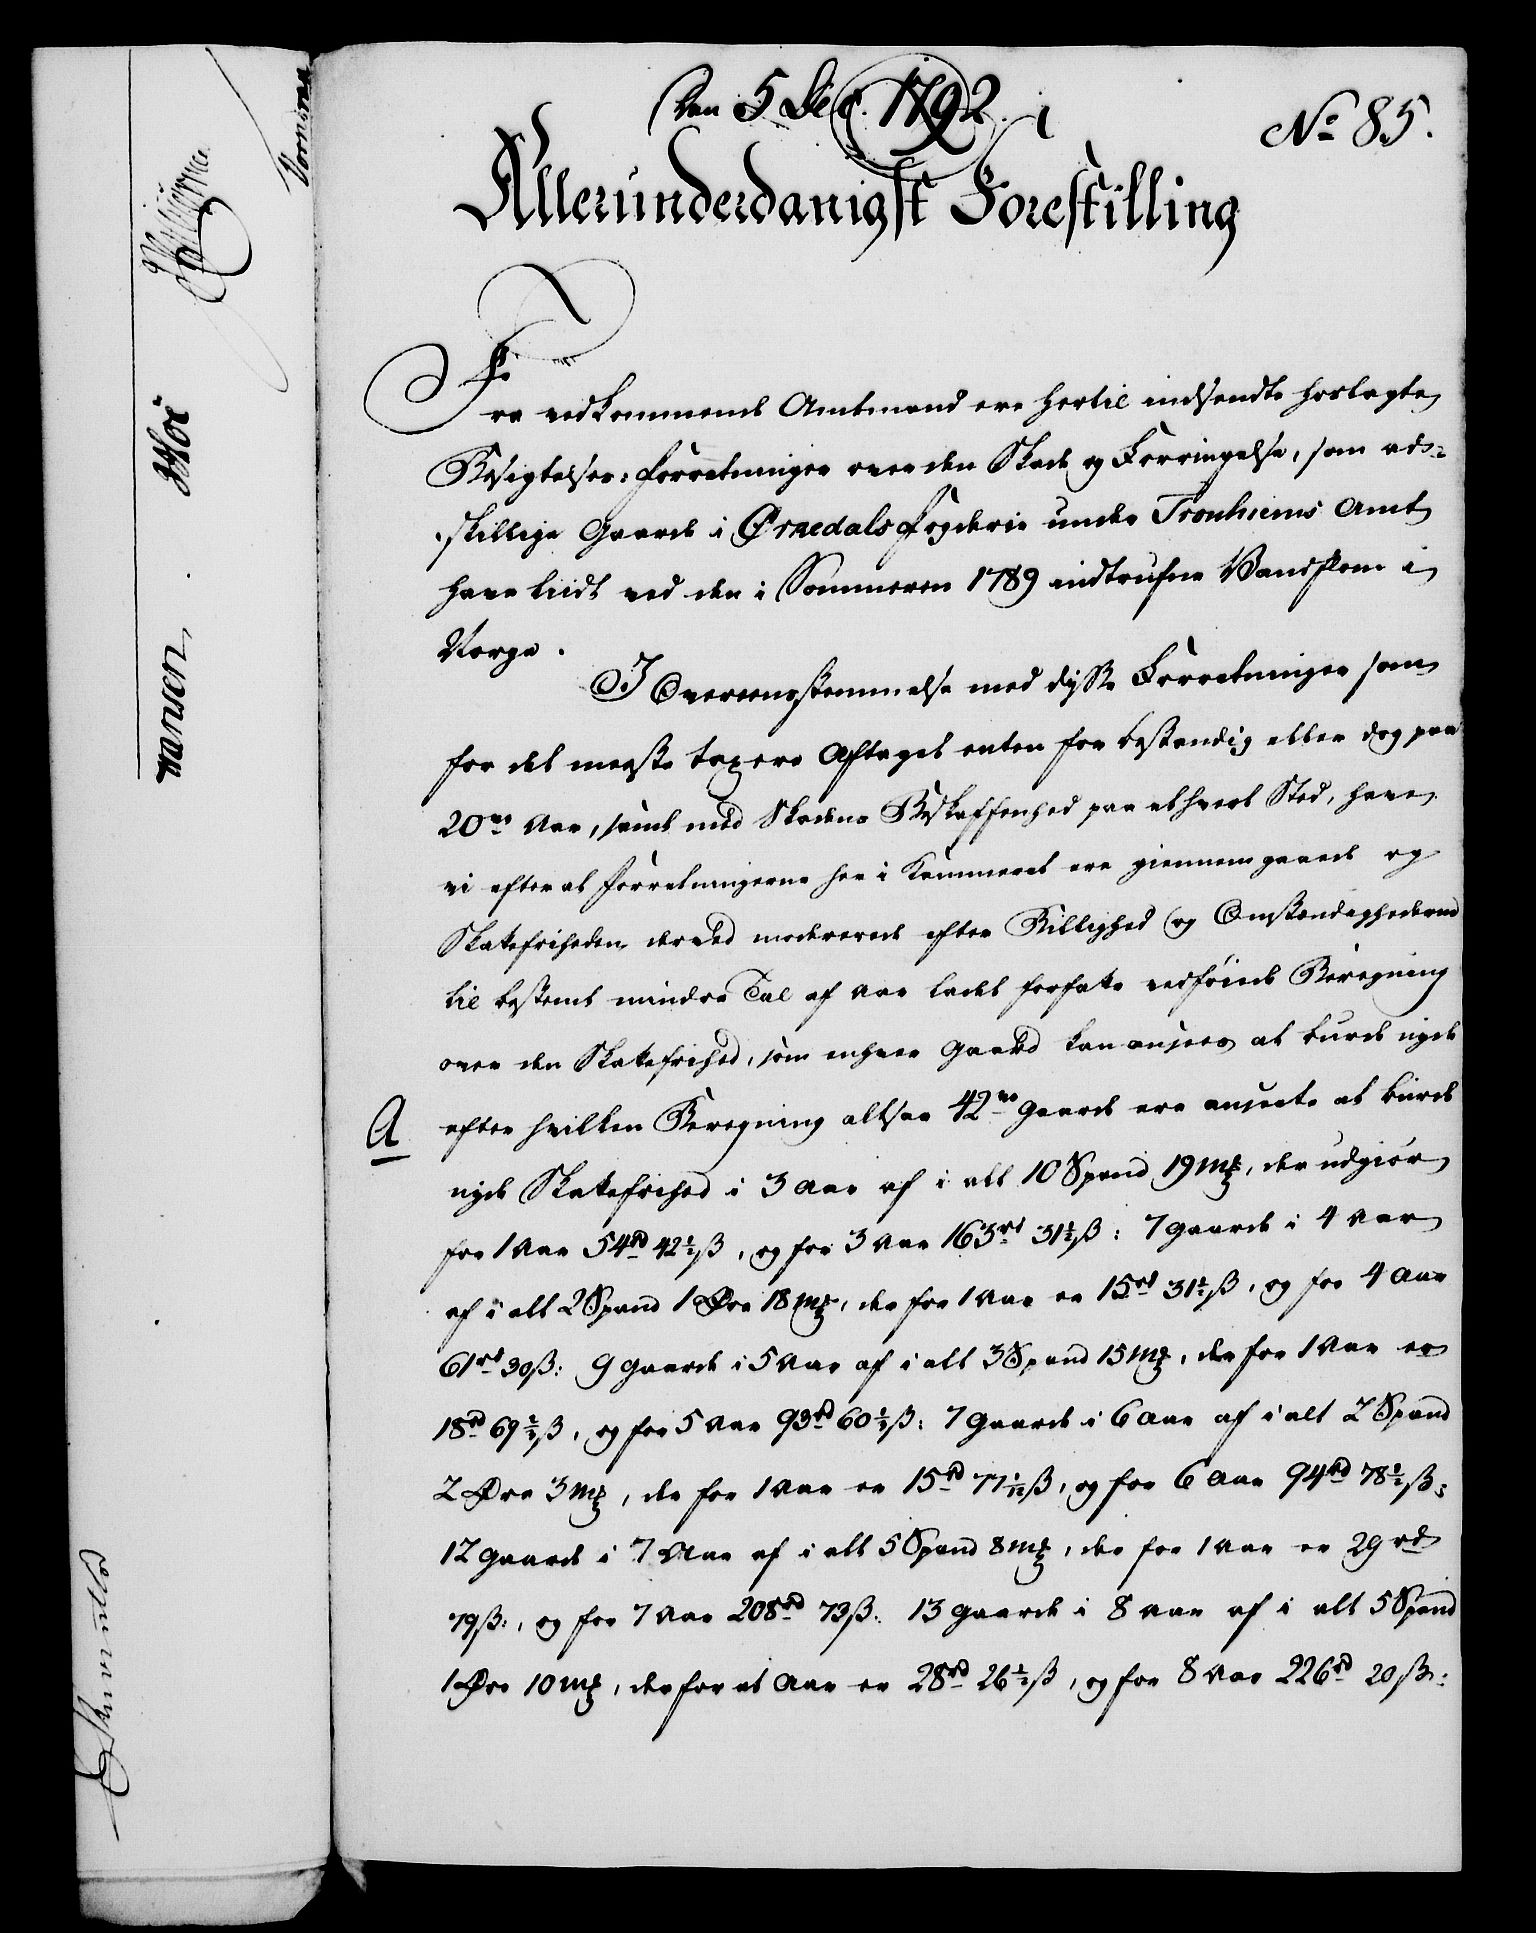 Den 5 Dec. 1792.
No 85.
Allerunderdanigst Forestilling
Fra vedkommende Amtmand ere hertil indsendte hoslagte
Besigtelses-Forretninger over den Skade og Forringelse, som ad-
skillige Gaarde i Ørkedals Fogderie under Tronhiems Amt
have liidt ved den i Sommeren 1789 indtrufne Vandflom i
Norge.
I Overeensstemmelse med disse Forretninger som
for det meeste taxere Aftaget enten for bestandig eller dog paa
20ve Aar, samt med Skadens Beskaffenhed paa ethvert Sted, have
vi efter at Forretningerne her i Kammeret ere giennemgaaede og
Skatefriheden derved modererede efter Billighed og Omstændighederne
til bestemt mindre Tal af Aar ladet forfatte vedføiede Beregning
over den Skatefrihed, som enhver Gaard kan ansees at burde nyde
A
efter hvilken Beregning altsaa 42ve Gaarde ere anseete at burde
nyde Skatefrihed i 3 Aar af i alt 10 Spand 19 mk, der udgiør
for 1 Aar 54 rd 42½ ß, og for 3 Aar 163 rd 31½ ß: 7 Gaarde i 4 Aar
af i alt 2 Spand 1 Øre 18 mk, der for 1 Aar er 15 rd 31½ ß, og for 4 Aar
61 rd 30 ß: 9 Gaarde i 5 Aar af i alt 3 Spand 15 mk, der for 1 Aar er
18 rd 69½ ß, og for 5 Aar 93 rd 60½ ß: 7 Gaarde i 6 Aar af i alt 2 Spand
2 Øre 3 mk, der for 1 Aar er 15 rd 77 1/12 ß, og for 6 Aar 94 rd 78½ ß:
12 Gaarde i 7 Aar af i alt 5 Spand 8 mk, der for 1 Aar er 29 rd
79 ß:, og for 7 Aar 208 rd 73 ß: 13 Gaarde i 8 Aar af i alt 5 Spand
1 Øre 10 mk, der for et Aar er 28 rd 26½ ß, og for 8 Aar 226 rd 20 ß: